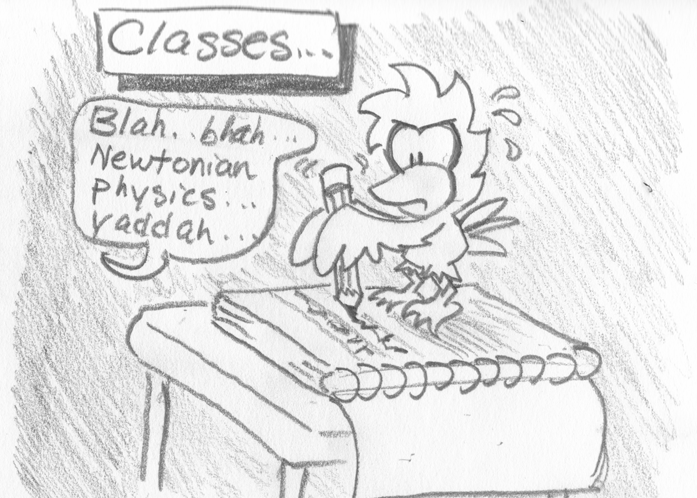 Classes...
Blah.. blah...
Newtonian
physics...
yaddah...